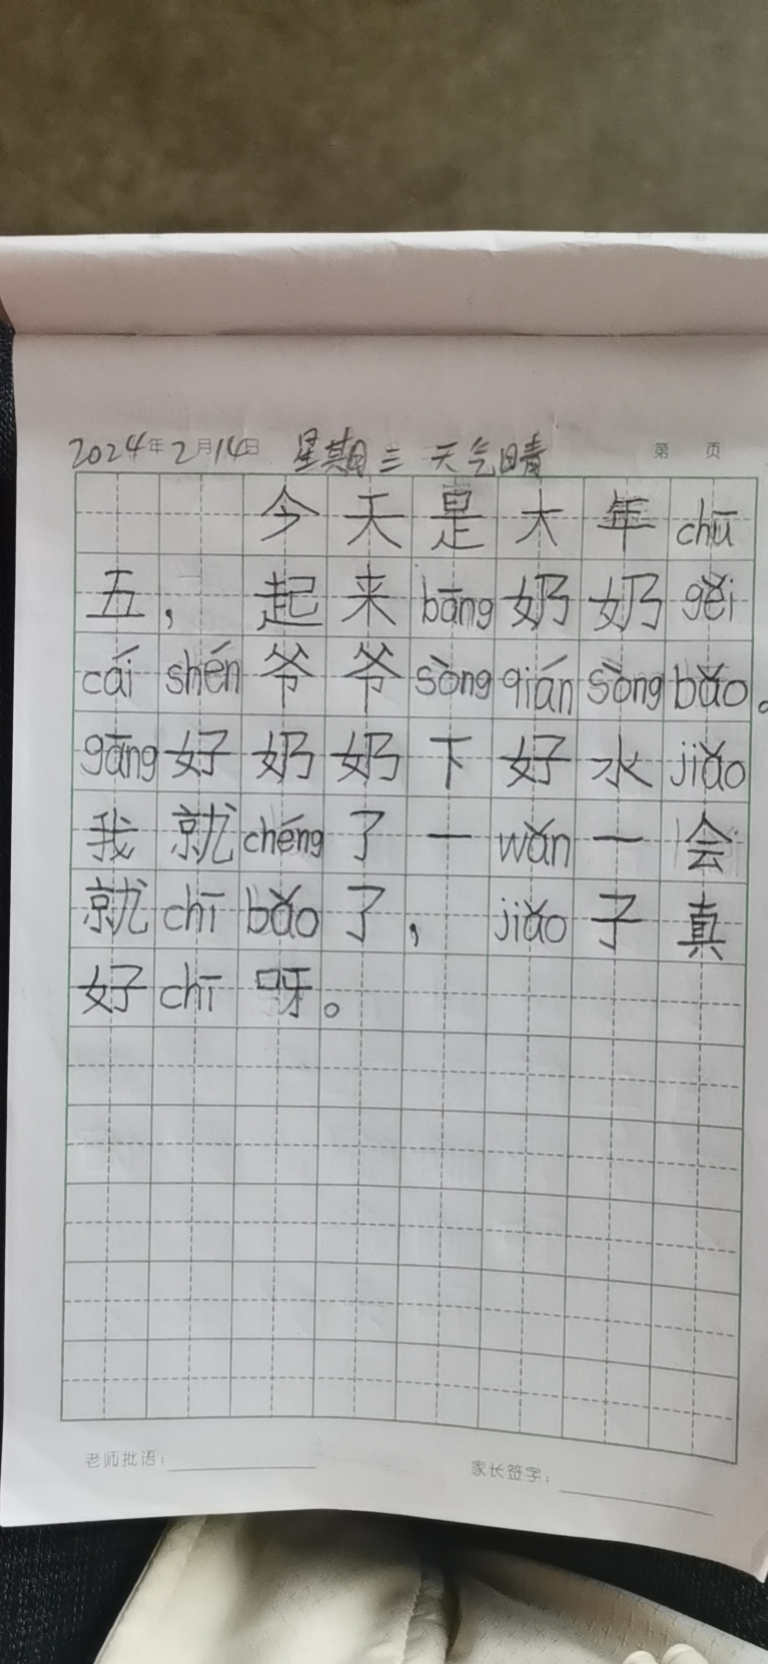 2024年2月14日 星期三 天气晴 第 页
今天是大年chū
五，起来bāng奶奶gěi
cái shén爷爷sòng qián sòng bǎo。
gāng好奶奶下好水jiǎo
我就chéng了一wǎn一会
就chī bǎo了，jiǎo子真
好chī呀。
老师批语：
家长签字：